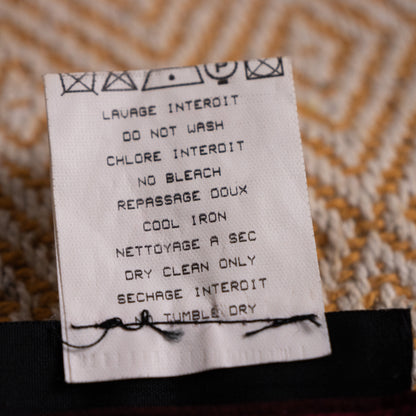 P
LAVAGE INTERDIT
DO NOT WASH
CHLORE INTERDIT
NO BLEACH
REPASSAGE DOUX
COOL IRON
NETTOYAGE A SEC
DRY CLEAN ONLY
SECHAGE INTERDIT
NO TUMBLE DRY